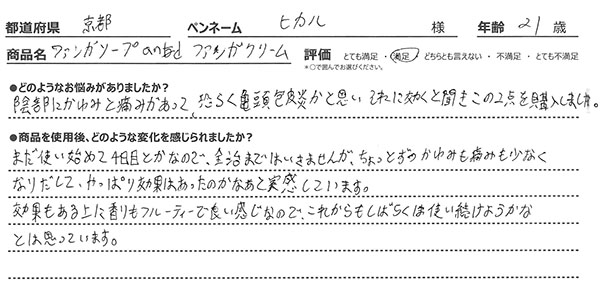 都道府県 京都 ペンネーム ヒカル 様 年齢 21 歳
商品名 ファンガソープand ファンガクリーム 評価 とても満足 ・ 満足 ・ どちらとも言えない ・ 不満足 ・ とても不満足
*○で囲んでお選びください。
●どのようなお悩みがありましたか?
陰部にかゆみと痛みがあって、恐らく亀頭包皮炎かと思い それに効くと聞きこの2点を購入しました。
●商品を使用後、どのような変化を感じられましたか?
まだ使い始めて4日目とかなので、全治まではいきませんが、ちょっとずつかゆみも痛みも少なく
なりだして、やっぱり効果はあったのかなあと実感しています。
効果もある上に香りもフルーティーで良い感じなので、これからもしばらくは使い続けようかな
とは思っています。